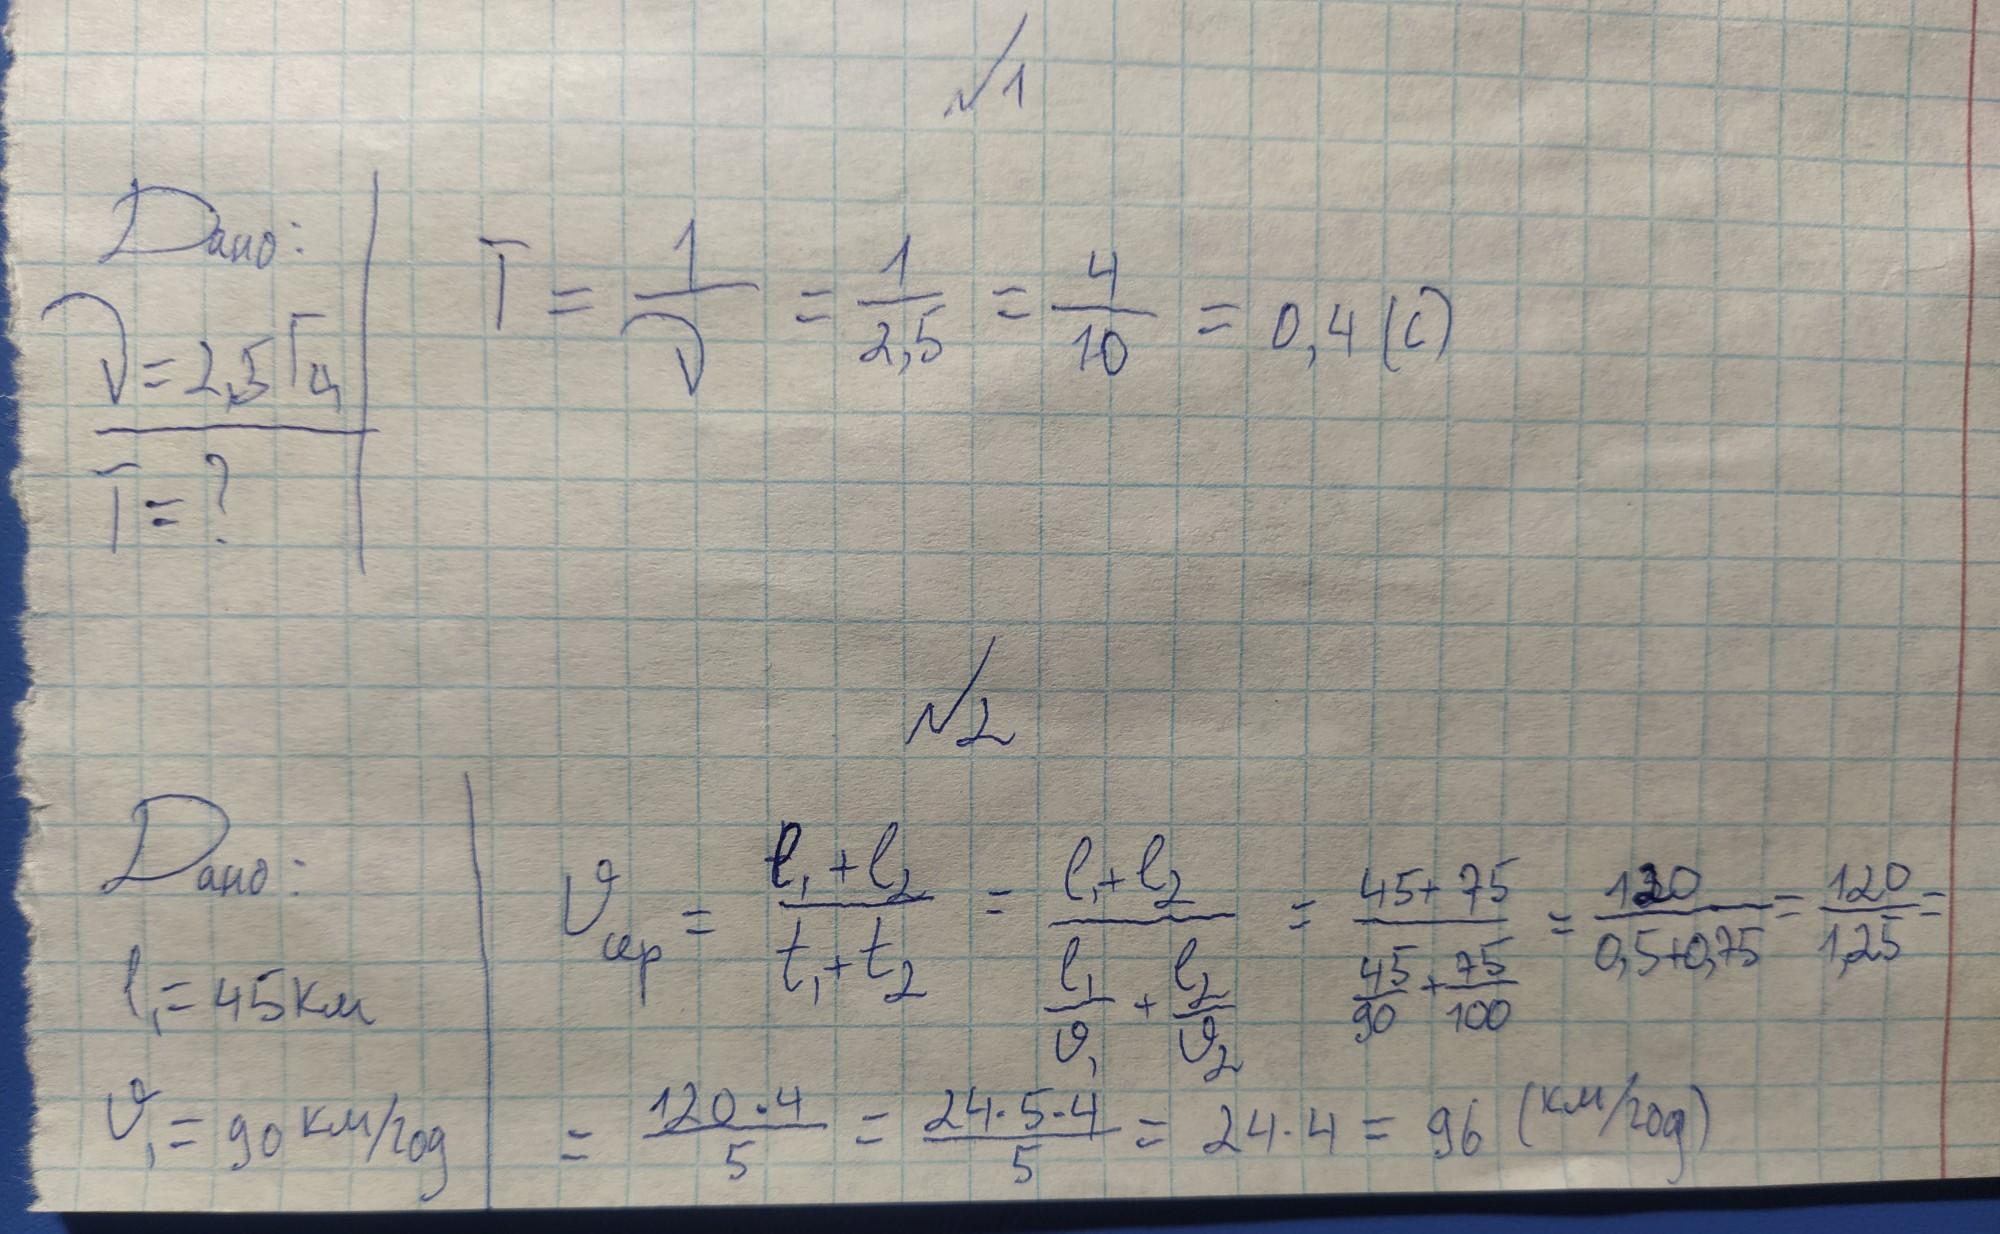 №1
Дано:
ν = 2,5 Гц
T = ?
T = 1/ν = 1/2,5 = 4/10 = 0,4 (с)
№2
Дано:
l₁ = 45 км
υ₁ = 90 км/год
υсер = (l₁ + l₂)/(t₁ + t₂) = (l₁ + l₂)/(l₁/υ₁ + l₂/υ₂) = (45 + 75)/(45/90 + 75/100) = 120/(0,5+0,75) = 120/1,25 =
= 120·4/5 = 24·5·4/5 = 24·4 = 96 (км/год)